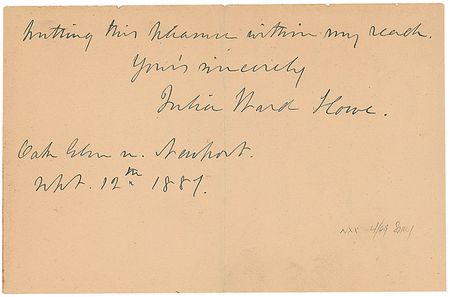 putting this pleasure within my reach.
Your's sincerely
Julia Ward Howe.
Oak Glen n. Newport.
Sept. 12th 1881.